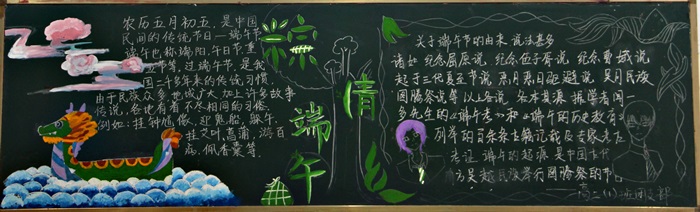 农历五月初五,是中国
民间的传统节日—端午节
端午也称端阳,午日节,重
五节等,过端午节,是我
国二千多年来的传统习惯
由于民族众多,地域广大,加上许多故事
传说,各地有着不尽相同的习俗
例如:挂钟馗像,迎鬼船,躲午,
挂艾叶,菖蒲,游百
病,佩香囊等
粽
情
端
午
关于端午节的由来,说法甚多
诸如:纪念屈原说,纪念伍子胥说,纪念曹娥说
起于三代夏至节说,恶月恶日驱避说,吴月民族
图腾祭说等,以上各说,各本其源,据学者闻一
多先生的《端午考》和《端午的历史教育》
列举的百余条古籍记载及专家考古
考证,端午的起源,是中国古代
方吴越民族举行图腾祭的节
高二(1)班团支部